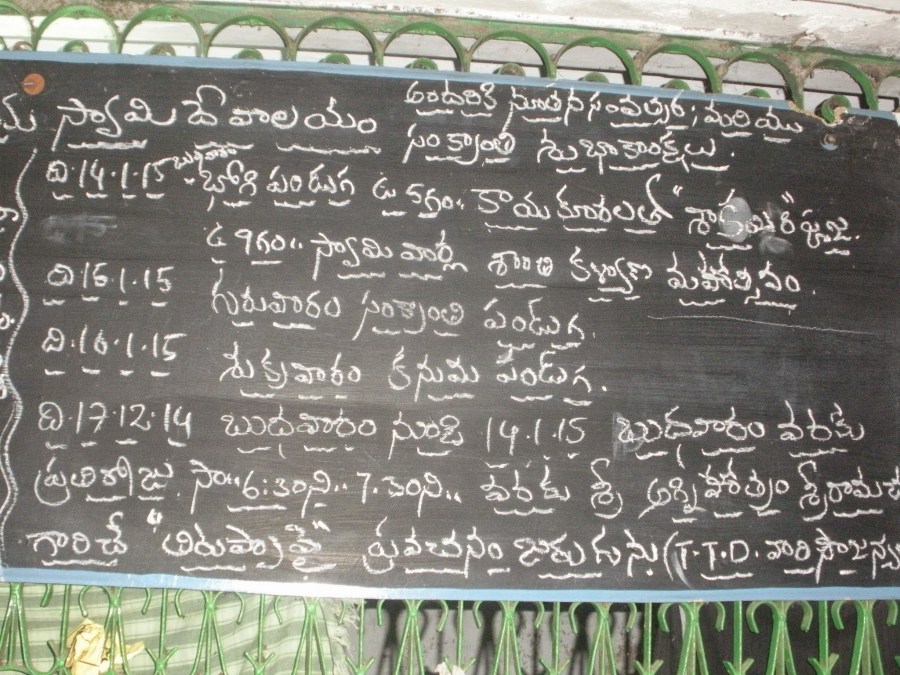 స్వామి దేవాలయం
అందరికి నూతన సంవత్సర, మరియు
సంక్రాంతి శుభాకాంక్షలు.
ది.14.1.15 బుధవారం భోగి పండుగ ఉ 5గం॥ కాయకూరలతో "శాకంబరి" పూజ.
ఉ 9గం॥ స్వామి వార్ల శాంతి కళ్యాణ మహోత్సవం.
ది.15.1.15 గురువారం సంక్రాంతి పండుగ.
ది.16.1.15 శుక్రవారం కనుమ పండుగ.
ది.17.12.14 బుధవారం నుండి 14.1.15 బుధవారం వరకు
ప్రతిరోజు సా॥ 6:30ని॥ 7.30ని॥ వరకు శ్రీ అగ్నిహోత్రం శ్రీరామ
గారిచే "తిరుప్పావై" ప్రవచనం జరుగును (T.T.D. వారి సౌజన్య